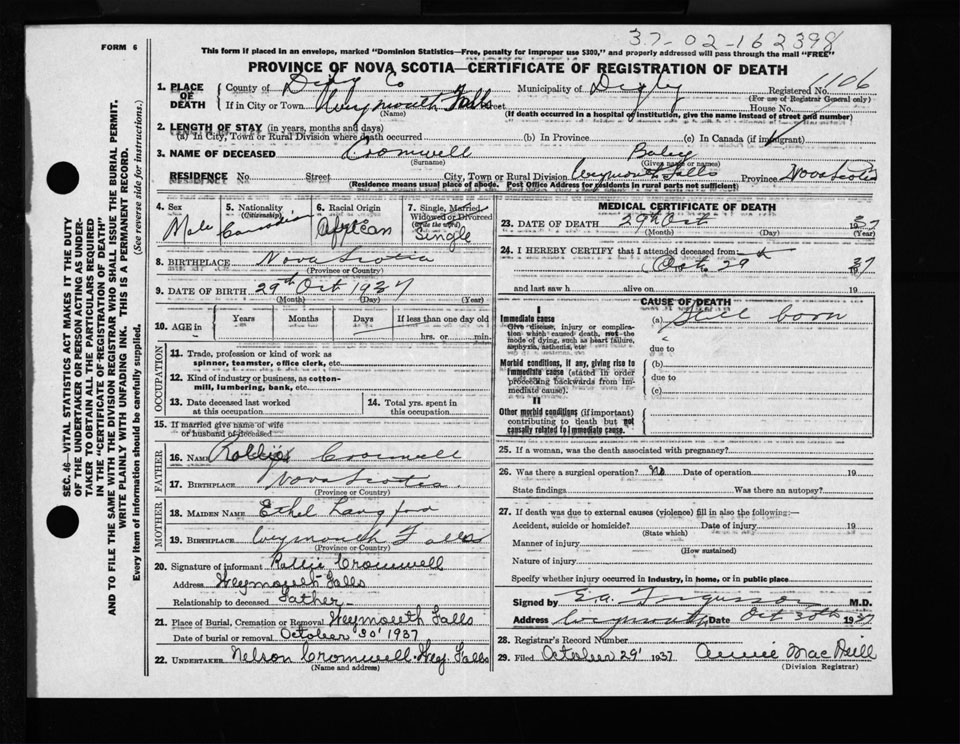 37-02-162398
FORM 6
This form if placed in an envelope, marked "Dominion Statistics—Free, penalty for improper use $300," and properly addressed will pass through the mail "FREE"
PROVINCE OF NOVA SCOTIA—CERTIFICATE OF REGISTRATION OF DEATH
1. PLACE OF DEATH
County of Digby Co Municipality of Digby Registered No. 1106
(For use of Registrar General only)
If in City or Town Weymouth Falls Street House No.
(Name) (If death occurred in a hospital or institution, give the name instead of street and number)
2. LENGTH OF STAY (in years, months and days)
(a) In City, Town or Rural Division where death occurred (b) In Province (c) In Canada (if immigrant)
3. NAME OF DECEASED Cromwell Baby
(Surname) (Given name or names)
RESIDENCE No. Street City, Town or Rural Division Weymouth Falls Province Nova Scotia
(Residence means usual place of abode. Post Office Address for residents in rural parts not sufficient)
4. Sex Male
5. Nationality (Citizenship) Canadian
6. Racial Origin African
7. Single, Married, Widowed or Divorced (write the word) Single
8. BIRTHPLACE Nova Scotia
(Province or Country)
9. DATE OF BIRTH 29th Oct 1937
(Month) (Day) (Year)
10. AGE in Years Months Days If less than one day old
hrs. or min.
OCCUPATION
11. Trade, profession or kind of work as spinner, teamster, office clerk, etc.
12. Kind of industry or business, as cotton-mill, lumbering, bank, etc.
13. Date deceased last worked at this occupation
14. Total yrs. spent in this occupation
15. If married give name of wife or husband of deceased
FATHER
16. NAME Cromwell
17. BIRTHPLACE Nova Scotia.
(Province or Country)
MOTHER
18. MAIDEN NAME Ethel Langford
19. BIRTHPLACE Weymouth Falls
(Province or Country)
20. Signature of informant Rollie Cromwell
Address Weymouth Falls
Relationship to deceased Father
21. Place of Burial, Cremation or Removal Weymouth Falls
Date of burial or removal October 30' 1937
22. UNDERTAKER Nelson Cromwell. Wey. Falls
(Name and address)
MEDICAL CERTIFICATE OF DEATH
23. DATE OF DEATH 29th Oct 1937
(Month) (Day) (Year)
24. I HEREBY CERTIFY that I attended deceased from
Oct 29th 1937
and last saw h alive on 19
CAUSE OF DEATH
I
Immediate cause
Give disease, injury or complication which caused death, not the mode of dying, such as heart failure, asphyxia, asthenia, etc
(a) Still born
due to
Morbid conditions, if any, giving rise to immediate cause (stated in order proceeding backwards from immediate cause).
(b)
due to
(c)
II
Other morbid conditions (if important) contributing to death but not causally related to immediate cause.
25. If a woman, was the death associated with pregnancy?
26. Was there a surgical operation? No Date of operation 19
State findings Was there an autopsy?
27. If death was due to external causes (violence) fill in also the following:—
Accident, suicide or homicide? Date of injury 19
(State which)
Manner of injury
(How sustained)
Nature of injury
Specify whether injury occurred in industry, in home, or in public place
Signed by M.D.
Address Weymouth Date Oct 30th 1937
28. Registrar's Record Number
29. Filed October 29' 1937 Annie MacNeill
(Division Registrar)
SEC. 46—VITAL STATISTICS ACT MAKES IT THE DUTY
OF THE UNDERTAKER OR PERSON ACTING AS UNDER-
TAKER TO OBTAIN ALL THE PARTICULARS REQUIRED
IN THE "CERTIFICATE OF REGISTRATION OF DEATH"
AND TO FILE THE SAME WITH THE DIVISION REGISTRAR WHO SHALL ISSUE THE BURIAL PERMIT.
WRITE PLAINLY WITH UNFADING INK. THIS IS A PERMANENT RECORD.
Every item of information should be carefully supplied. (See reverse side for instructions.)